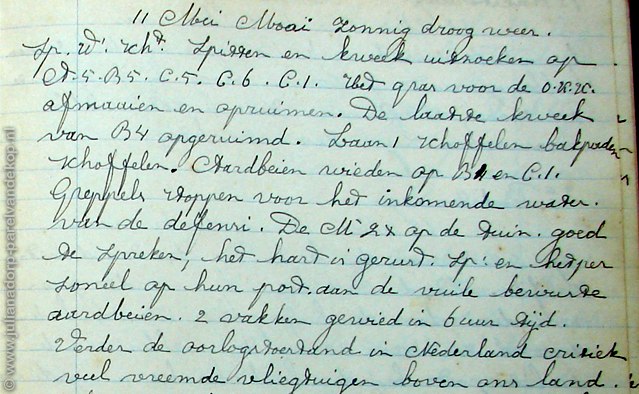 11 Mei Mooi zonnig droog weer.
Sp. W. Sch. Spitten en kweek uitzoeken op
A.5. B5. C.5. C.6. C.1. Het gras voor de O.K.K.
afmaaien en opruimen. De laatste kweek
van B4 opgeruimd. Laan 1 schoffelen bakpaden
schoffelen. Aardbeien wieden op B4 en C.1.
Greppels stoppen voor het inkomende water.
van de defensi. De M. 2x op de tuin. goed
te spreken, het hart is gerust. Sp. en het per
soneel op hun post. aan de vuile bewuste
aardbeien. 2 vakken gewied in 6 uur tijd.
Verder de oorlogstoestand in Nederland critiek
veel vreemde vliegtuigen boven ons land.
© www.julianadorp-parelvandekop.nl